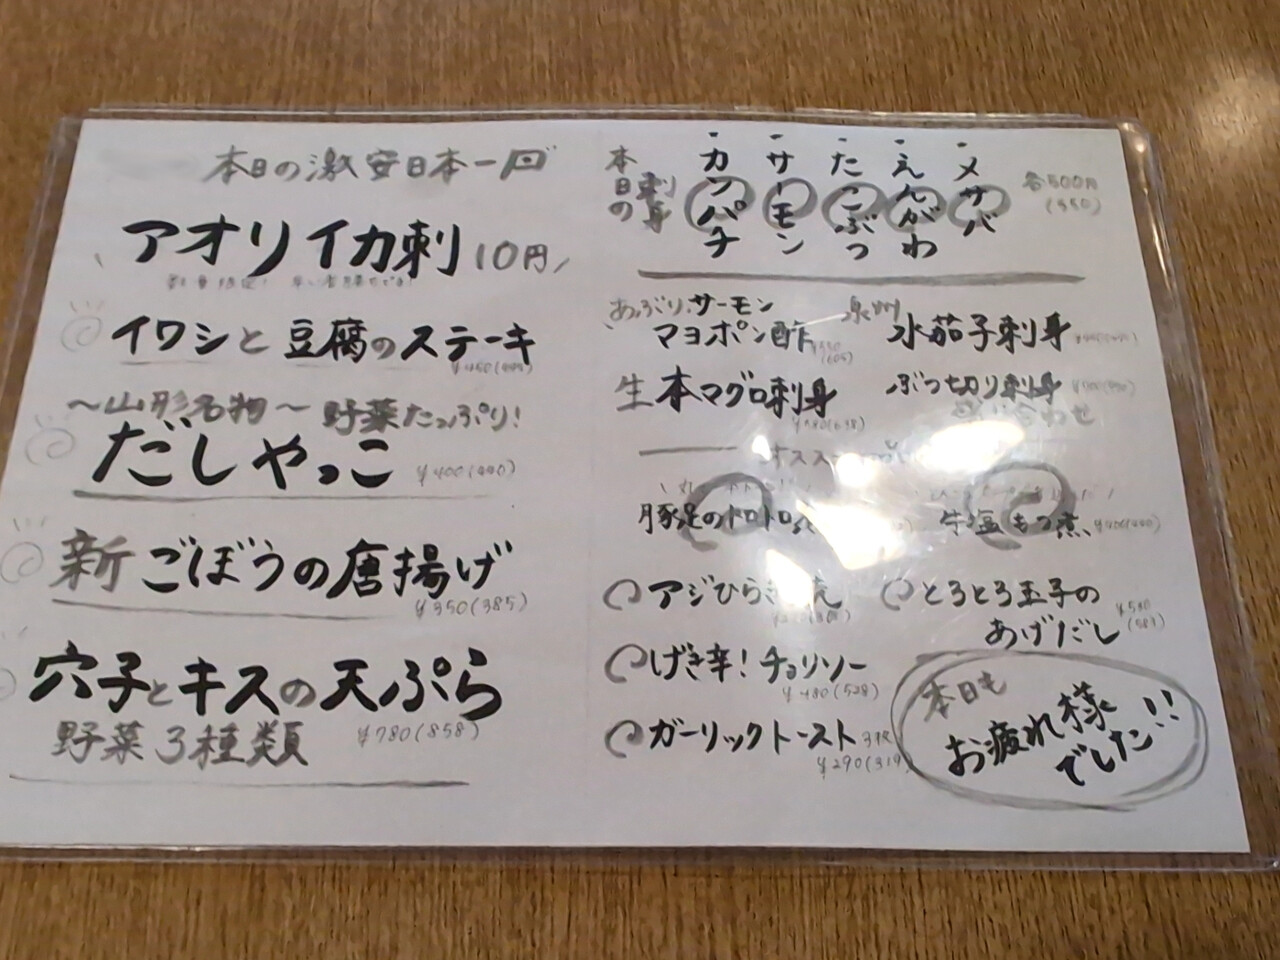 本日の激安日本一
アオリイカ刺 10円
イワシと豆腐のステーキ
～山形名物～ 野菜たっぷり!
だしやっこ ¥400(440)
新ごぼうの唐揚げ
¥350(385)
穴子とキスの天ぷら
野菜3種類 ¥780(858)
本日の刺身
・カンパチ
・サーモン
・たこぶつ
・えんがわ
・メサバ
各500円
あぶりサーモン
マヨポン酢
(605)
泉州
水茄子刺身
生本マグロ刺身
¥580(638)
ぶつ切り刺身
豚足のトロトロ
牛塩もつ煮 ¥400(440)
アジひらき
とろとろ玉子の
あげだし
げき辛!チョリソー
¥480(528)
ガーリックトースト 3枚
¥290(319)
本日も
お疲れ様
でした!!